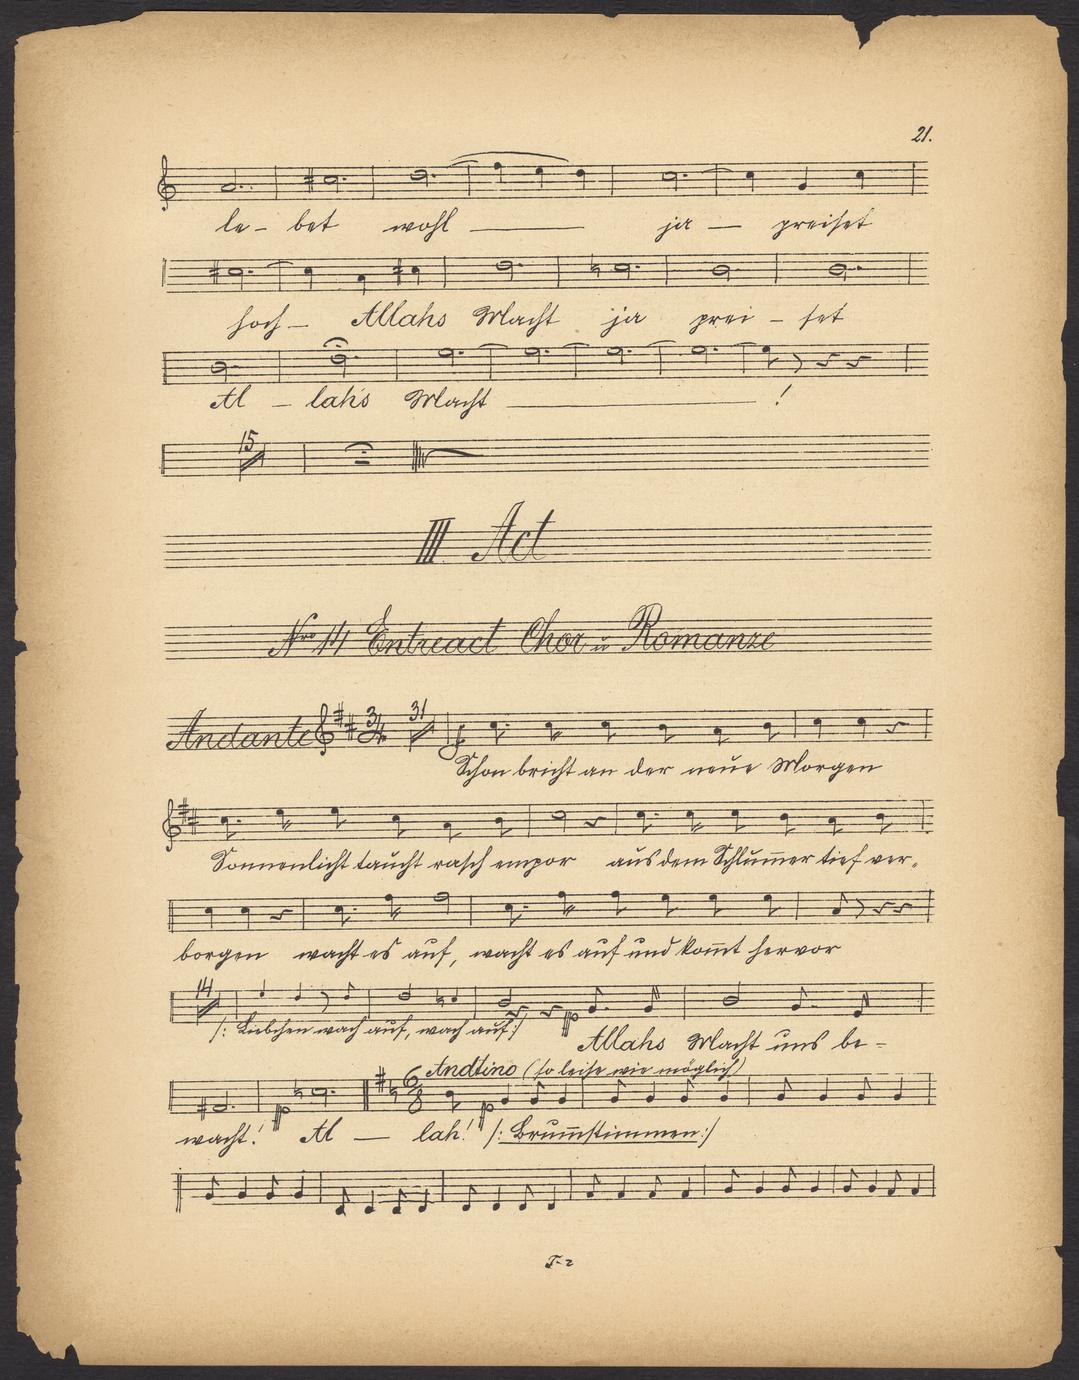 21.
le- bet wohl ja - preiset
hoch - Allahs Macht ja prei - set
Al - lahs Macht !
15
III Act
Nro 14 Entreact Chor u Romanze
Andante 3/4 31 f
Schon bricht an der neue Morgen
Sonnenlicht taucht rasch empor aus dem Schlum̅er tief ver-
borgen wacht es auf, wacht es auf und kom̅t hervor
14
/: Liebchen wach auf, wach auf :/ pp Allahs Macht uns be-
6/8 Andtino (so leise wie möglich)
wacht! pp Al - lah! pp /: Brum̅stimmen :/
T-2